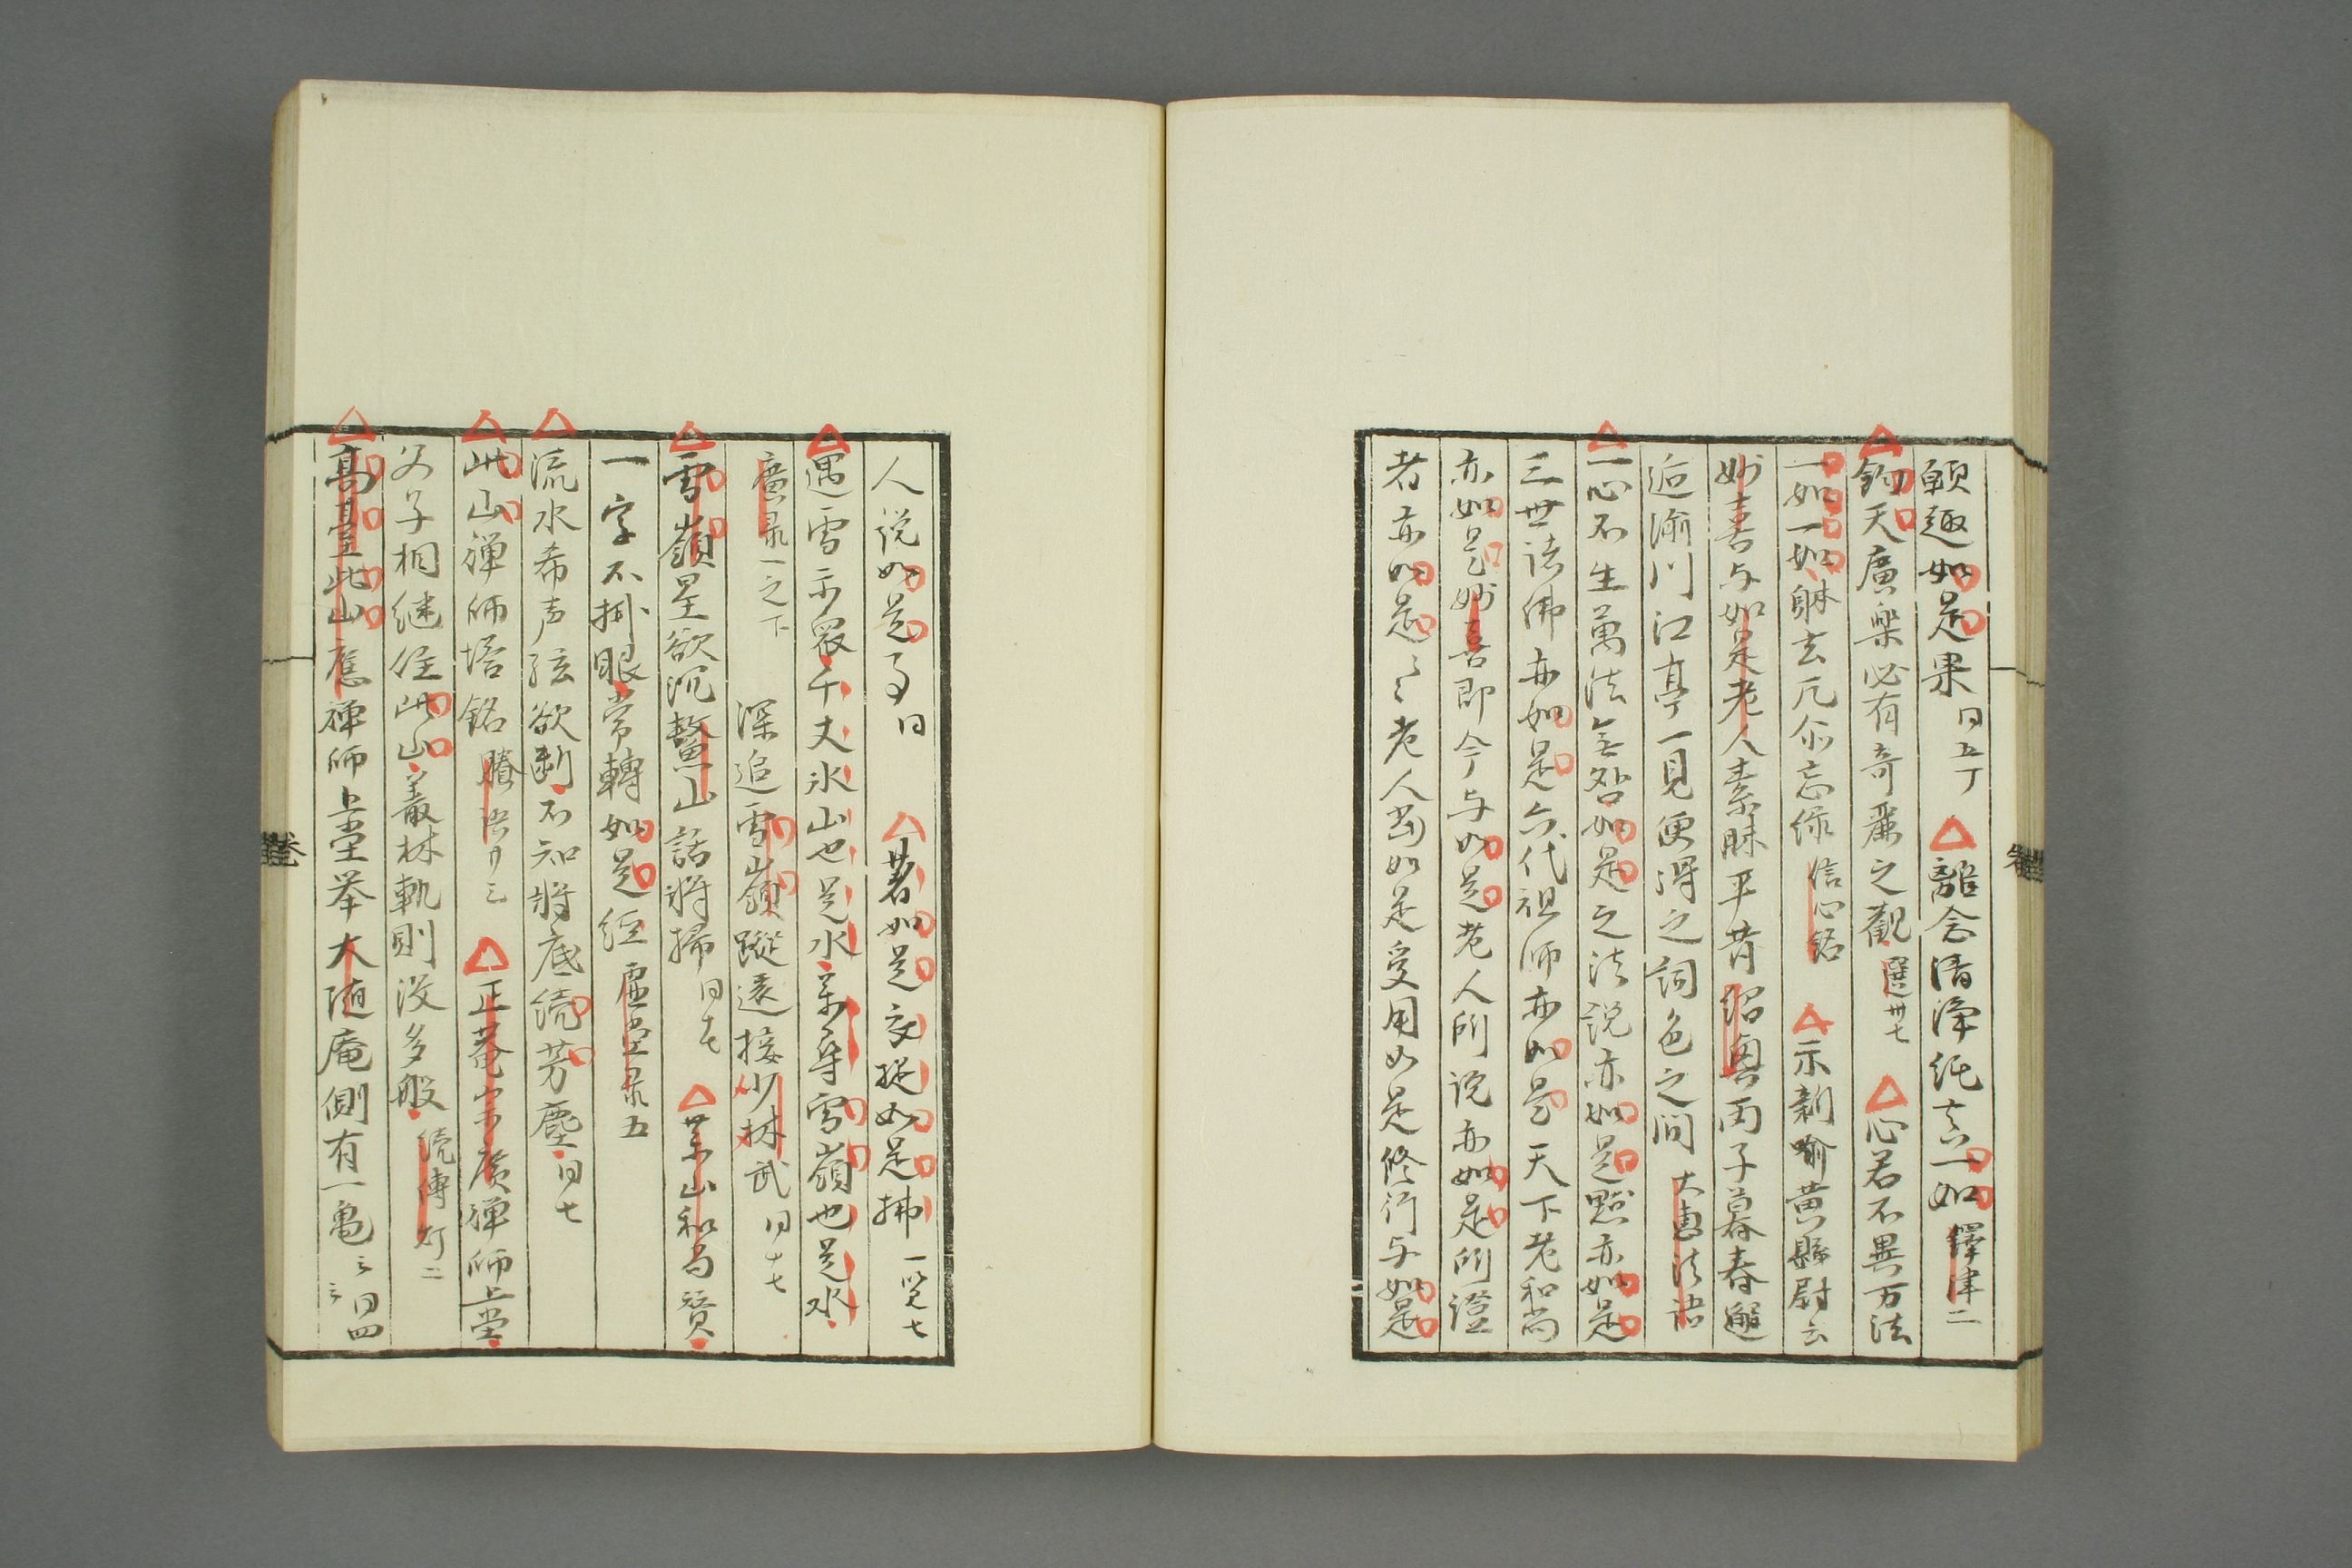 頼趣如是果 同五丁 離念清淨純真一如 鐔津二
鈞天廣樂必有奇麗之觀 選卅七 心若不異万法
一如一如躰玄兀尓忘縁 信心銘 示新喻黄縣尉云
妙喜与如是老人素昧平昔紹興丙子暮春邂
逅渝川江亭一見便得之詞色之間 大惠法語
一心不生萬法無咎如是之法説亦如是黙亦如是
三世諸佛亦如是六代祖師亦如是天下老和尚
亦如是妙喜即今与如是老人所説亦如是所證
者亦如是〻〻老人當如是受用如是修行与如是
人説如是事 同 著如是交挺如是拂 一覽七
遇雪示衆千丈氷山也是水、雪嶺也是水
廣录一之下 深追雪嶺蹤遠接少林武 同十七
雪嶺星欲沉鰲山話將掃 同七 業山和尚賛
一字不掛眼常轉如是經 虚堂录五
流水希声絃欲断不知將底続芳塵 同七
此山禅師塔銘 勝語 正菴宗廣禅師上堂
父子相継住此山叢林軌則没多般 続傳灯二
高臺此山應禅師上堂挙大随庵側有一亀 云云 同四